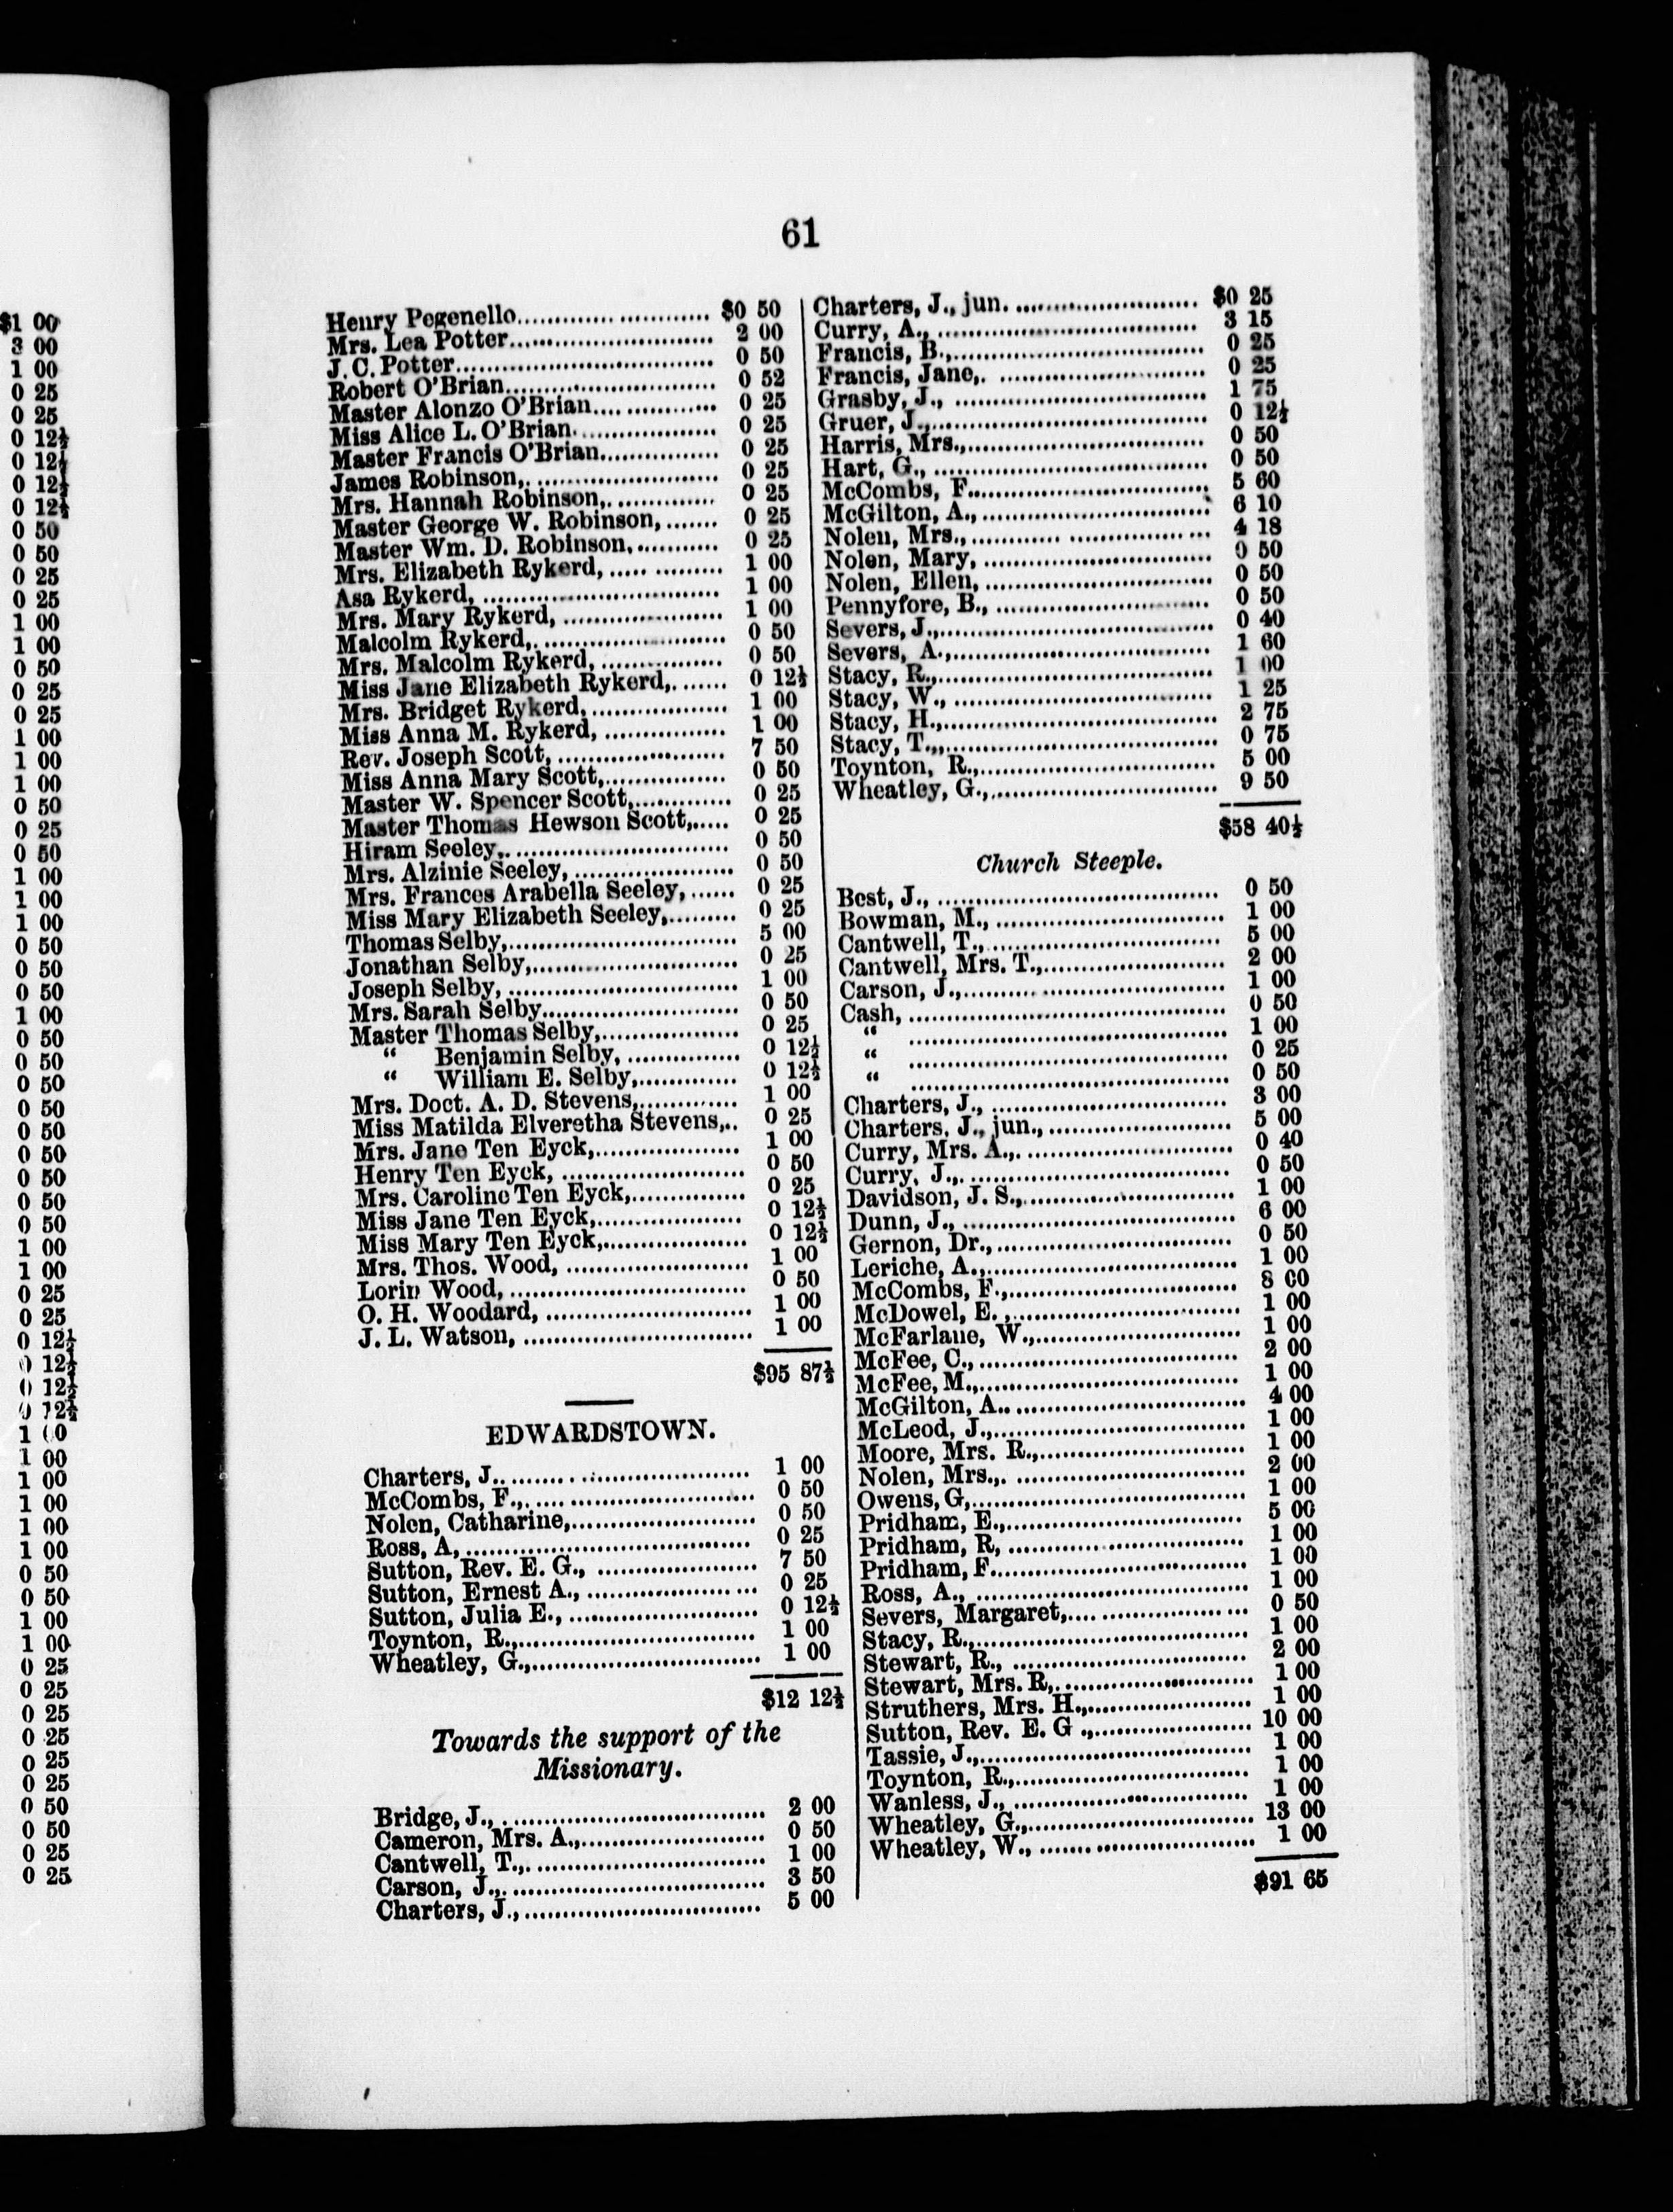 $1 00
3 00
1 00
0 25
0 25
0 12½
0 12½
0 12½
0 12½
0 50
0 50
0 25
0 25
1 00
1 00
0 50
0 25
0 25
1 00
1 00
1 00
0 50
0 25
0 50
1 00
1 00
1 00
0 50
0 50
0 50
1 00
0 50
0 50
0 50
0 50
0 50
0 50
0 50
0 50
0 50
1 00
1 00
0 25
0 25
0 12½
0 12½
0 12½
0 12½
1 00
1 00
1 00
1 00
1 00
1 00
0 50
0 50
1 00
1 00
0 25
0 25
0 25
0 25
0 25
0 25
0 50
0 50
0 25
0 25
61
Henry Pegenello........................ $0 50
Mrs. Lea Potter........................ 2 00
J. C. Potter........................ 0 50
Robert O'Brian........................ 0 52
Master Alonzo O'Brian............... 0 25
Miss Alice L. O'Brian.................. 0 25
Master Francis O'Brian............... 0 25
James Robinson,........................ 0 25
Mrs. Hannah Robinson,.............. 0 25
Master George W. Robinson,....... 0 25
Master Wm. D. Robinson,........... 0 25
Mrs. Elizabeth Rykerd,.............. 1 00
Asa Rykerd,........................ 1 00
Mrs. Mary Rykerd,..................... 1 00
Malcolm Rykerd,........................ 0 50
Mrs. Malcolm Rykerd,................ 0 50
Miss Jane Elizabeth Rykerd,....... 0 12½
Mrs. Bridget Rykerd,.................. 1 00
Miss Anna M. Rykerd,................ 1 00
Rev. Joseph Scott,..................... 7 50
Miss Anna Mary Scott,................ 0 50
Master W. Spencer Scott,............. 0 25
Master Thomas Hewson Scott,..... 0 25
Hiram Seeley,........................ 0 50
Mrs. Alzinie Seeley,..................... 0 50
Mrs. Frances Arabella Seeley,...... 0 25
Miss Mary Elizabeth Seeley,......... 0 25
Thomas Selby,........................ 5 00
Jonathan Selby,........................ 0 25
Joseph Selby,........................ 1 00
Mrs. Sarah Selby........................ 0 50
Master Thomas Selby,.................. 0 25
“ Benjamin Selby,............... 0 12½
“ William E. Selby,............. 0 12½
Mrs. Doct. A. D. Stevens,............. 1 00
Miss Matilda Elveretha Stevens,.. 0 25
Mrs. Jane Ten Eyck,................... 1 00
Henry Ten Eyck,........................ 0 50
Mrs. Caroline Ten Eyck,............... 0 25
Miss Jane Ten Eyck,................... 0 12½
Miss Mary Ten Eyck,................... 0 12½
Mrs. Thos. Wood,........................ 1 00
Lorin Wood,........................ 0 50
O. H. Woodard,........................ 1 00
J. L. Watson,........................ 1 00
$95 87½
EDWARDSTOWN.
Charters, J......................... 1 00
McCombs, F.,........................ 0 50
Nolen, Catharine,........................ 0 50
Ross, A,........................ 0 25
Sutton, Rev. E. G.,..................... 7 50
Sutton, Ernest A.,..................... 0 25
Sutton, Julia E.,........................ 0 12½
Toynton, R.,........................ 1 00
Wheatley, G.,........................ 1 00
$12 12½
Towards the support of the
Missionary.
Bridge, J.,........................ 2 00
Cameron, Mrs. A.,........................ 0 50
Cantwell, T.,........................ 1 00
Carson, J.,........................ 3 50
Charters, J.,........................ 5 00
Charters, J., jun......................... $0 25
Curry, A.,........................ 3 15
Francis, B.,........................ 0 25
Francis, Jane,......................... 0 25
Grasby, J.,........................ 1 75
Gruer, J.,........................ 0 12½
Harris, Mrs.,........................ 0 50
Hart, G.,........................ 0 50
McCombs, F......................... 5 60
McGilton, A.,........................ 6 10
Nolen, Mrs.,........................ 4 18
Nolen, Mary,........................ 0 50
Nolen, Ellen,........................ 0 50
Pennyfore, B.,........................ 0 50
Severs, J.,........................ 0 40
Severs, A.,........................ 1 60
Stacy, R.,........................ 1 00
Stacy, W.,........................ 1 25
Stacy, H.,........................ 2 75
Stacy, T.,,........................ 0 75
Toynton, R.,........................ 5 00
Wheatley, G.,........................ 9 50
$58 40½
Church Steeple.
Best, J.,........................ 0 50
Bowman, M.,........................ 1 00
Cantwell, T.,........................ 5 00
Cantwell, Mrs. T.,........................ 2 00
Carson, J.,........................ 1 00
Cash,........................ 0 50
“ ........................ 1 00
“ ........................ 0 25
“ ........................ 0 50
Charters, J.,........................ 3 00
Charters, J., jun.,........................ 5 00
Curry, Mrs. A.,........................ 0 40
Curry, J.,........................ 0 50
Davidson, J. S.,........................ 1 00
Dunn, J.,........................ 6 00
Gernon, Dr.,........................ 0 50
Leriche, A.,........................ 1 00
McCombs, F.,........................ 8 00
McDowel, E.,........................ 1 00
McFarlane, W.,........................ 1 00
McFee, C.,........................ 2 00
McFee, M.,........................ 1 00
McGilton, A.......................... 4 00
McLeod, J.,........................ 1 00
Moore, Mrs. R.,........................ 1 00
Nolen, Mrs.,......................... 2 00
Owens, G,........................ 1 00
Pridham, E.,........................ 5 00
Pridham, R,........................ 1 00
Pridham, F......................... 1 00
Ross, A.,........................ 1 00
Severs, Margaret,........................ 0 50
Stacy, R.,........................ 1 00
Stewart, R.,........................ 2 00
Stewart, Mrs. R,......................... 1 00
Struthers, Mrs. H.,..................... 1 00
Sutton, Rev. E. G.,..................... 10 00
Tassie, J.,........................ 1 00
Toynton, R.,........................ 1 00
Wanless, J.,........................ 1 00
Wheatley, G.,........................ 13 00
Wheatley, W.,........................ 1 00
$91 65